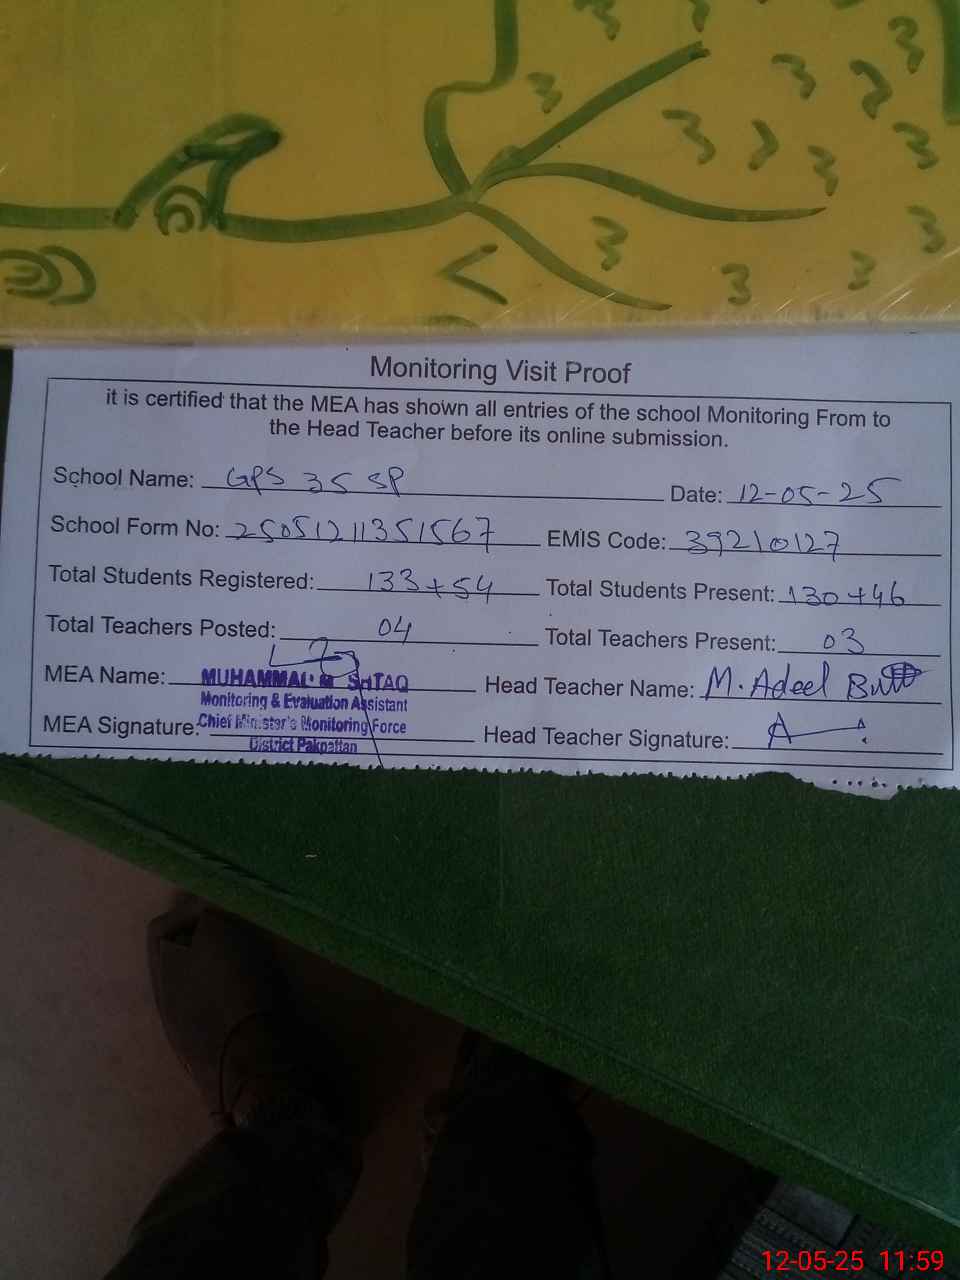 Monitoring Visit Proof
it is certified that the MEA has shown all entries of the school Monitoring From to
the Head Teacher before its online submission.
School Name: GPS 35 SP Date: 12-05-25
School Form No: 25051211351567 EMIS Code: 39210127
Total Students Registered: 133+54 Total Students Present: 130+46
Total Teachers Posted: 04 Total Teachers Present: 03
MEA Name: MUHAMMAD Head Teacher Name: M. Adeel Butt
Monitoring & Evaluation Assistant
MEA Signature: Chief Minister's Monitoring Force Head Teacher Signature:
District Pakpattan
12-05-25 11:59